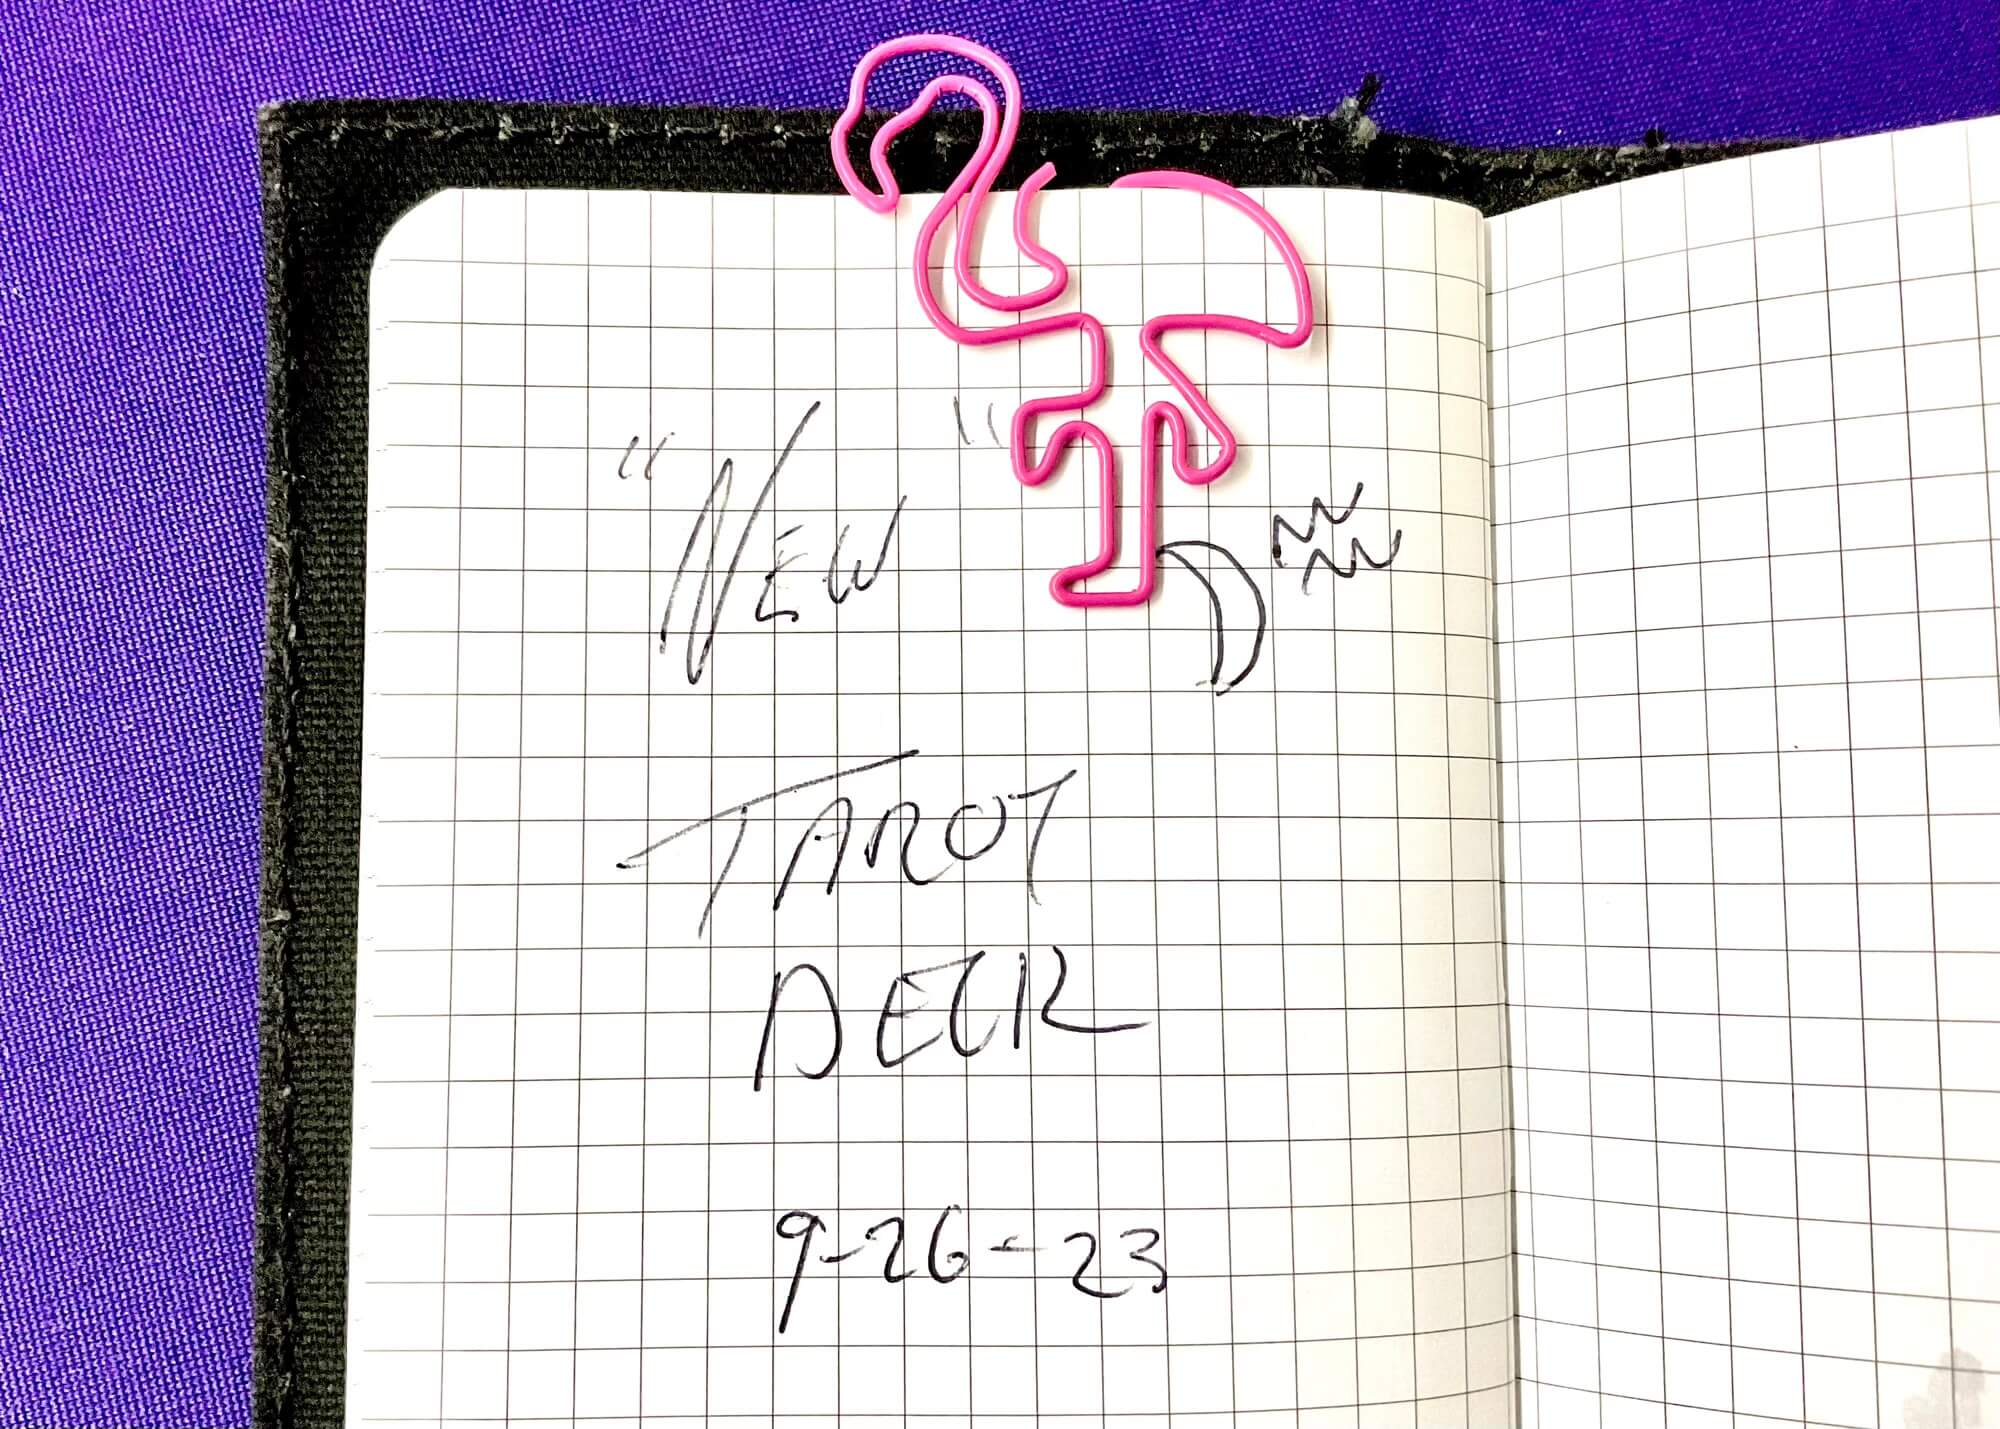 "NEW"
TAROT
DECK
9-26-23